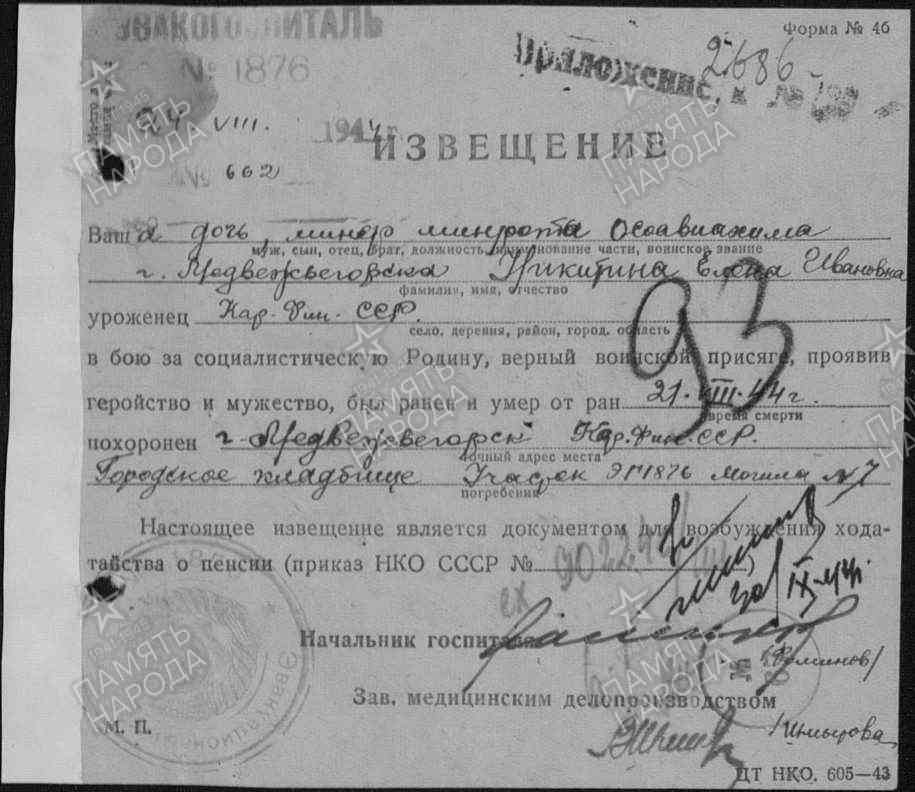 ЭВАКОГОСПИТАЛЬ
Форма № 46
№ 1876
Приложение, к №
2686
24 VIII. 1944 г.
ИЗВЕЩЕНИЕ
№ 602
Ваша дочь, минер минроты Осоавиахима
муж, сын, отец, брат, должность, наименование части, воинское звание
г. Медвежьегорска Никитина Елена Ивановна
фамилия, имя, отчество
уроженец Кар. Фин. ССР.
село, деревня, район, город, область
93
в бою за социалистическую Родину, верный воинской присяге, проявив
геройство и мужество, был ранен и умер от ран 21. VIII. 44 г.
время смерти
похоронен г. Медвежьегорск Кар. Фин. ССР.
точный адрес места
Городское кладбище Участок ЭГ1876 Могила №7
погребения
Настоящее извещение является документом для возбуждения хода-
тайства о пенсии (приказ НКО СССР № )
Начальник госпиталя
Зав. медицинским делопроизводством
М. П.
ЦТ НКО. 605—43
ПАМЯТЬ НАРОДА